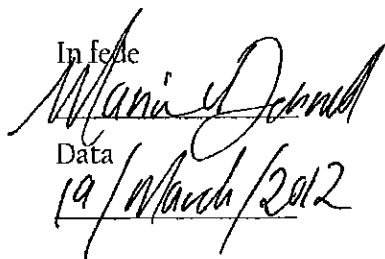 In fede
Maria
Data
19/March/2012